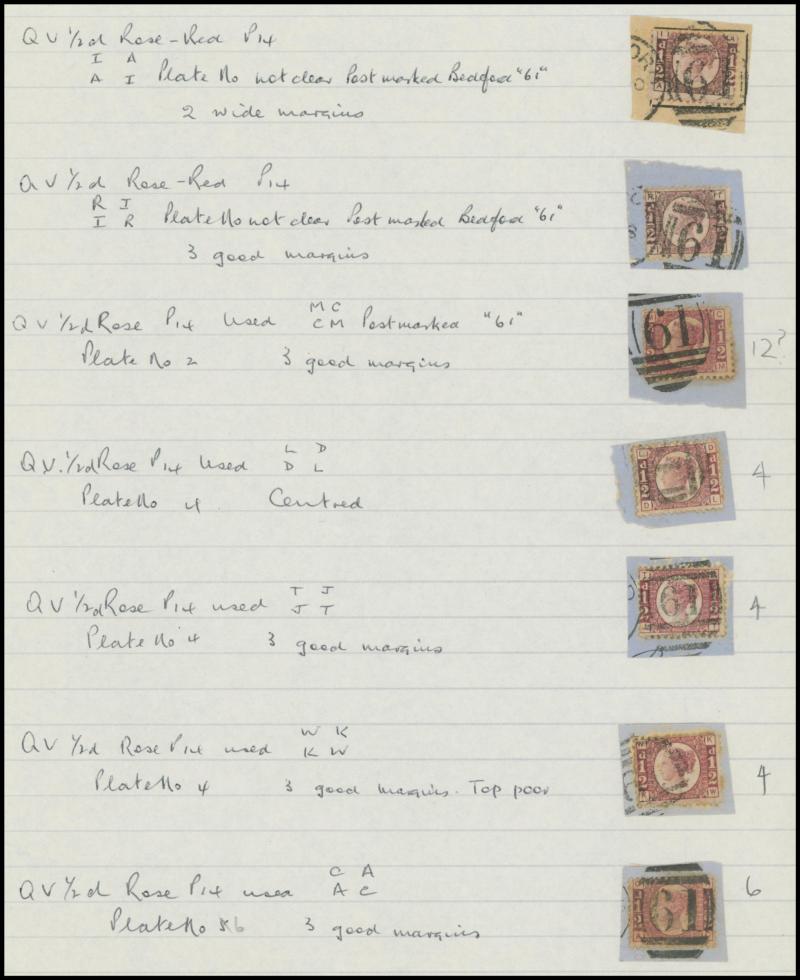 QV 1/2d Rose-Red P14
I A
A I Plate No not clear Postmarked Bedford "61"
2 wide margins
QV 1/2d Rose-Red P14
R I
I R Plate No not clear Postmarked Bedford "61"
3 good margins
M C
QV 1/2d Rose P14 Used C M Postmarked "61"
Plate No 2 3 good margins
12?
L D
QV. 1/2d Rose P14 Used D L
Plate No 4 Centred
4
T J
QV 1/2d Rose P14 used J T
Plate No 4 3 good margins
4
W K
QV 1/2d Rose P14 used K W
Plate No 4 3 good margins. Top poor
4
C A
QV 1/2d Rose P14 used A C
Plate No 6 3 good margins
6
61
61
61
61
61